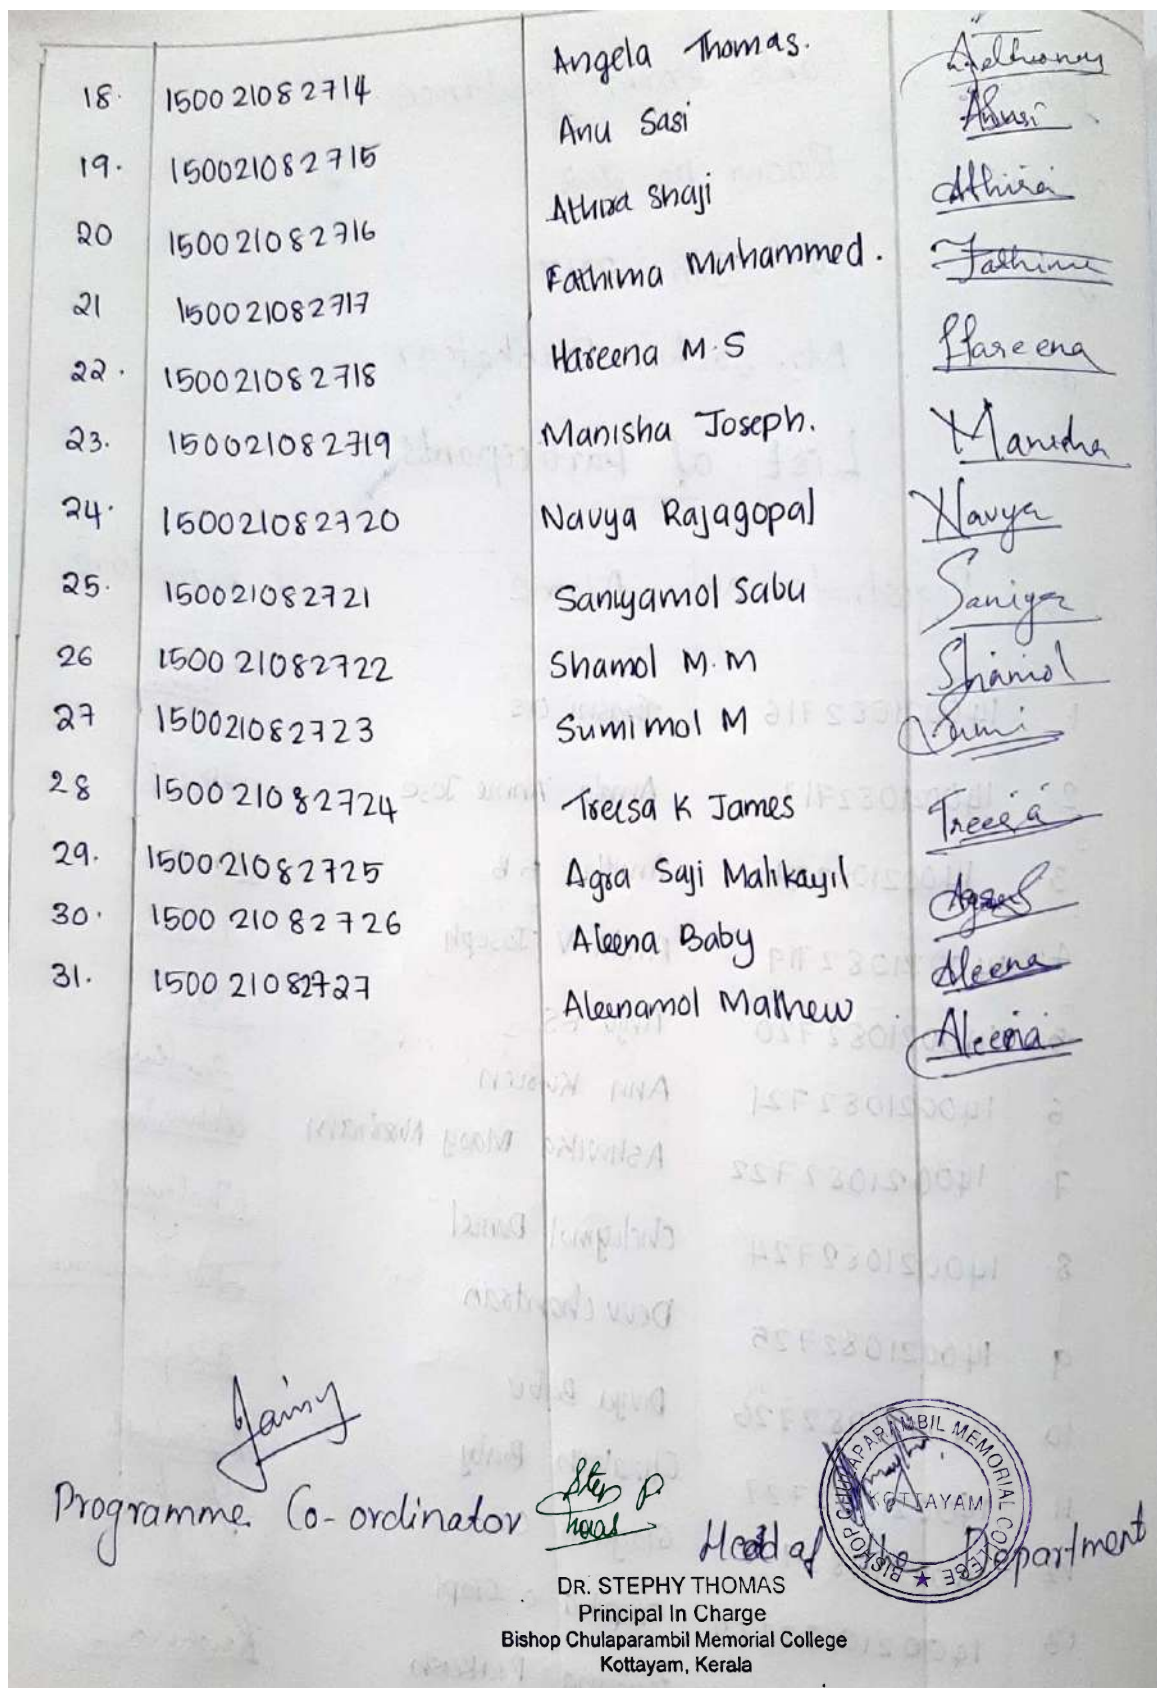 Angela Thomas. Ajethomas
18. 150021082714 Anu Sasi Anusasi
19. 150021082715 Athira Shaji Athira
20 150021082716 Fathima Muhammed. Fathima
21 150021082717 Hareena M.S Hareena
22. 150021082718 Manisha Joseph. Manisha
23. 150021082719 Navya Rajagopal Navya
24. 150021082720 Saniyamol Sabu Saniya
25. 150021082721 Shamol M.M Shamol
26 150021082722 Sumimol M Sumi
27 150021082723 Treesa K James Treesa
28 150021082724 Agra Saji Malikayil Agra
29. 150021082725 Aleena Baby Aleena
30. 150021082726 Aleenamol Mathew Aleena
31. 150021082727
Jainy
Programme Co-ordinator
Head of the Department
BISHOP CHULAPARAMBIL MEMORIAL COLLEGE
KOTTAYAM
DR. STEPHY THOMAS
Principal In Charge
Bishop Chulaparambil Memorial College
Kottayam, Kerala